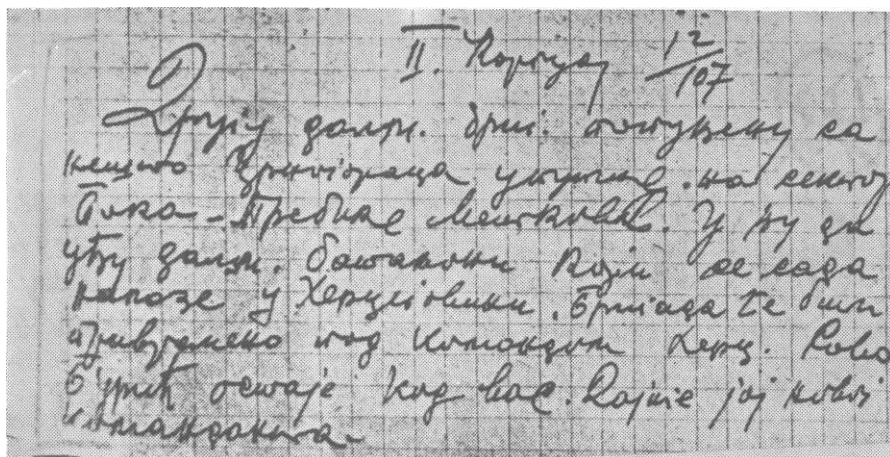 II. Корпусу 12/107
Другу далм. бриг. попуњену са
нешто Црногораца упутите на сектор
Бока - Требиње Метковић. У њу да
уђу далм. батаљони који се сада
налазе у Херцеговини. Бригада ће бити
привремено под командом Херц.
Ђурић остаје код вас. Дајте јој новог
команданта.